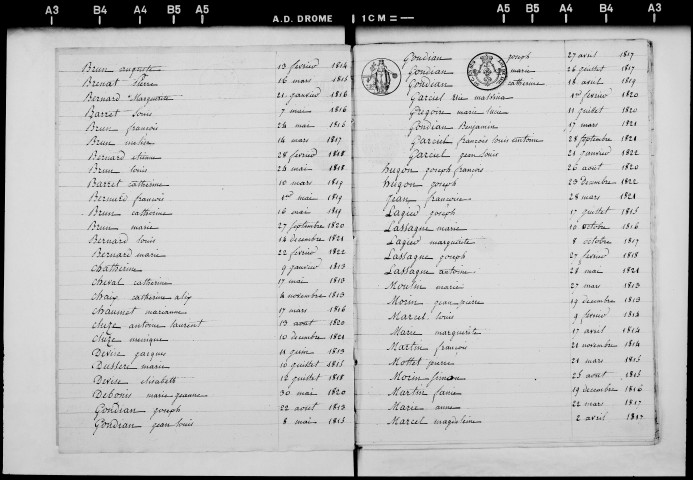 A3 B4 A4 B5 A5 A.D. DROME 1CM = A5 B5 A4 B4 A3
Brun auguste 13 fevrier 1814
Brunat Pierre 16 mars 1815
Bernard Marguerite 21 janvier 1816
Barret Louis 7 mai 1816
Brun françois 24 mai 1816
Brun 14 mars 1817
Bernard etienne 28 fevrier 1818
Brun louis 23 mai 1818
Barret catherine 10 mars 1819
Bernard francois 1er mai 1819
Brun catherine 16 mai 1819
Brun marie 27 septembre 1820
Bernard louis 14 decembre 1821
Bernard marie 22 fevrier 1822
Chatherine 9 janvier 1813
Cheval catherine 17 mai 1813
Chaix catherine alix 4 novembre 1813
Chaumet marianne 17 mars 1816
Chize antoine laurent 13 aout 1820
Chize monique 10 decembre 1821
Devin jacques 11 juin 1813
Dussere marie 10 juillet 1815
Devese elisabeth 12 juillet 1818
Debonis marie jeanne 30 mai 1820
Gondian joseph 22 aout 1813
Gondian jean louis 8 mai 1815
Gondian joseph 27 avril 1817
Gondian marie 26 juillet 1817
Gondian catherine 18 avril 1819
Garciel malvina 1er fevrier 1820
Gregoire marie 11 juillet 1820
Gondian Benjamin 17 mars 1821
Garciel françois louis antoine 28 septembre 1821
Garciel jean louis 21 janvier 1822
hugon joseph françois 26 aout 1820
hugon joseph 23 decembre 1822
Jean francoise 28 mars 1821
Lagier joseph 17 juillet 1815
Lassagne marie 10 octobre 1816
Lagier marguerite 8 octobre 1817
Lassagne joseph 27 fevrier 1818
Lassagne antoine 28 mai 1821
Moulin marie 27 mars 1813
Morin jean pierre 19 decembre 1813
Marcel louis 9 fevrier 1814
Marie marguerite 17 avril 1814
Martin françois 21 novembre 1814
Mottet pierre 21 mars 1815
Morin simon 25 aout 1815
Martin 19 decembre 1816
Marie anne 22 mars 1817
Marcel magdeleine 2 avril